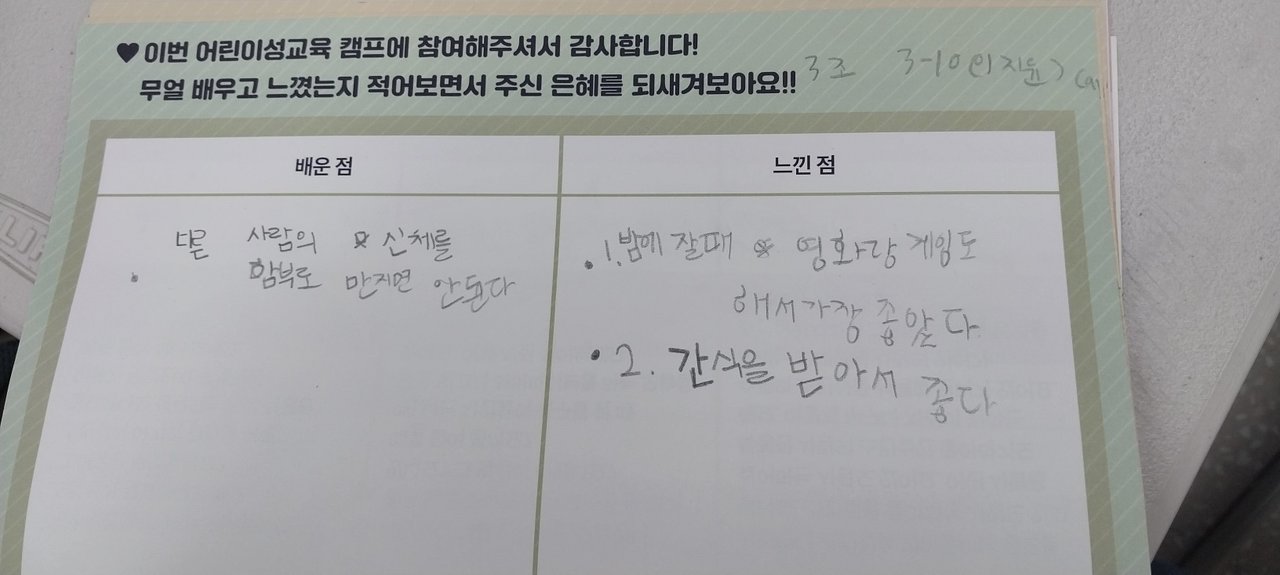 ♥이번 어린이성교육 캠프에 참여해주셔서 감사합니다!
무얼 배우고 느꼈는지 적어보면서 주신 은혜를 되새겨보아요!!
3조 3-10 (이지윤)
배운 점
다른 사람의 신체를
• 함부로 만지면 안된다
느낀 점
• 1. 밤에 잘때 영화랑 게임도
해서가장 좋았다.
• 2. 간식을 받아서 좋다